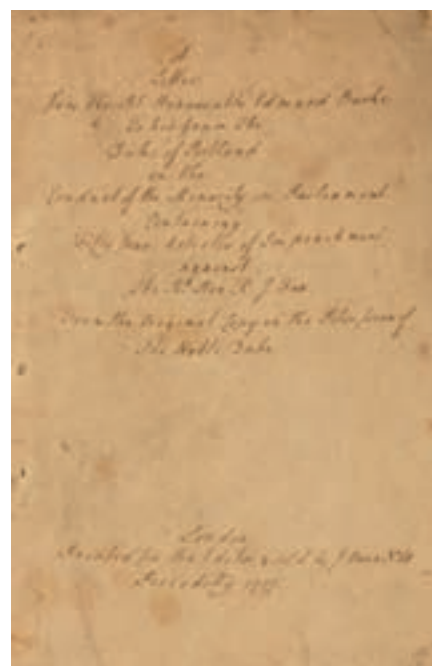 A
Letter
from the Rt Honourable Edmund Burke
to his Grace the
Duke of Portland
on the
Conduct of the Minority in Parliament
Containing
Fifty four Articles of Impeachment
against
The Rt Hon C. J. Fox
From the Original Copy in the Possession of
The Noble Duke
London
Printed for the Editor & sold by J Owen
Piccadilly 1797